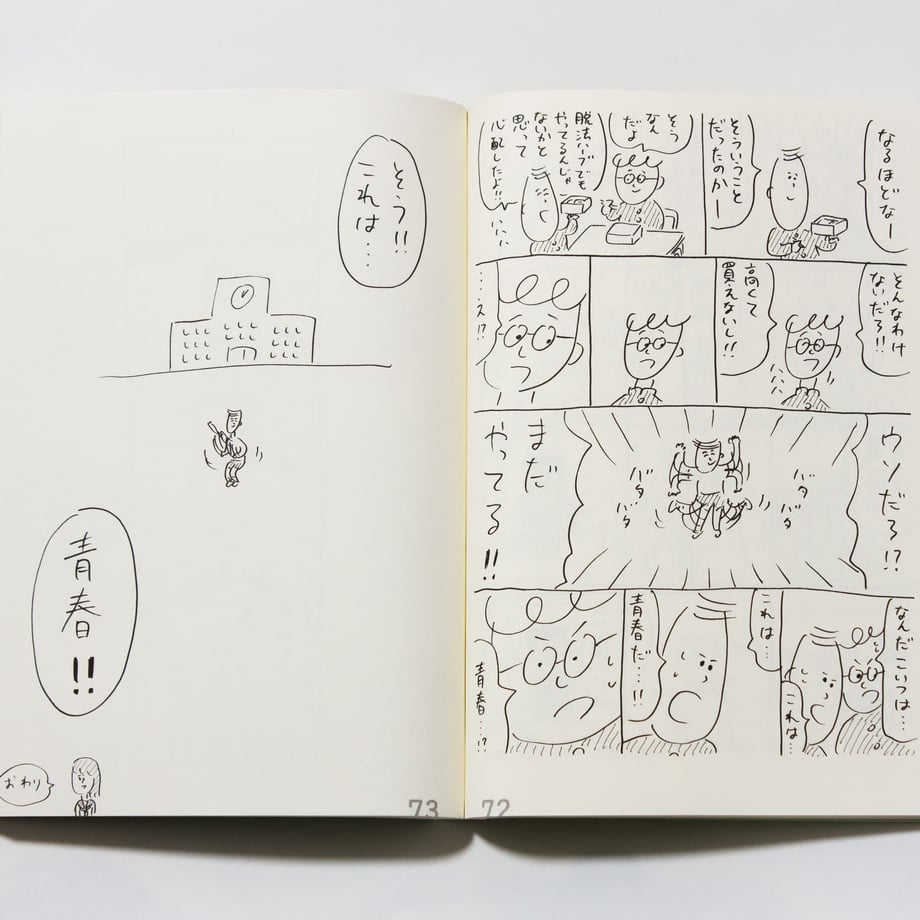 なるほどなー
そういうこと
だったのかー
そう
なん
だよ
脱法ハーブでも
やってるんじゃ
ないかと
思って
心配したよ!!
そんなわけ
ないだろ!!
高くて
買えないし!!
・・・え!?
ウソだろ!?
バタ
バタ
バタ
バタ
まだ
やってる!!
なんだこいつは…
これは…
これは…
青春だ…!!
青春…!?
72
そう!!
これは…
青春!!
おわり
73